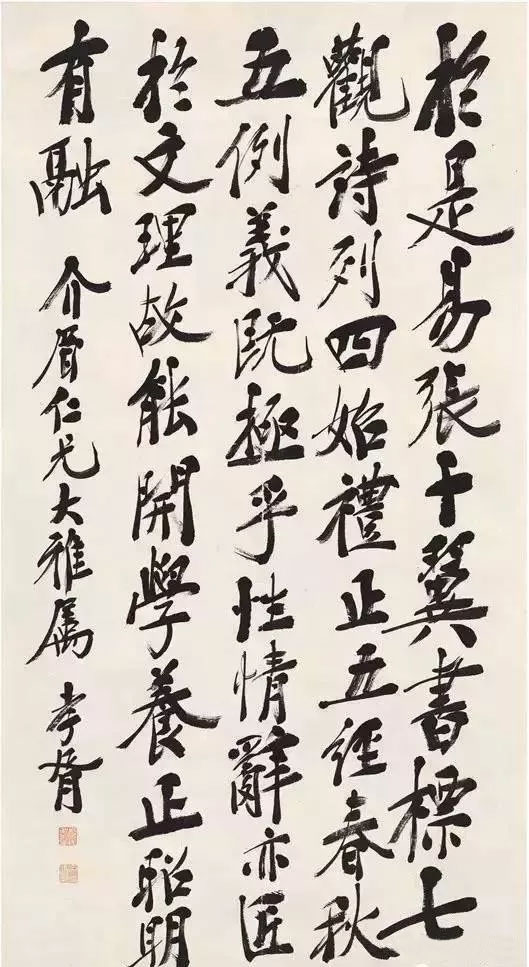 於是易張十翼書標七
觀詩列四始禮正五經春秋
五例義既極乎性情辭亦匠
於文理故能開學養正昭明
有融
介眉仁兄大雅屬
孝胥